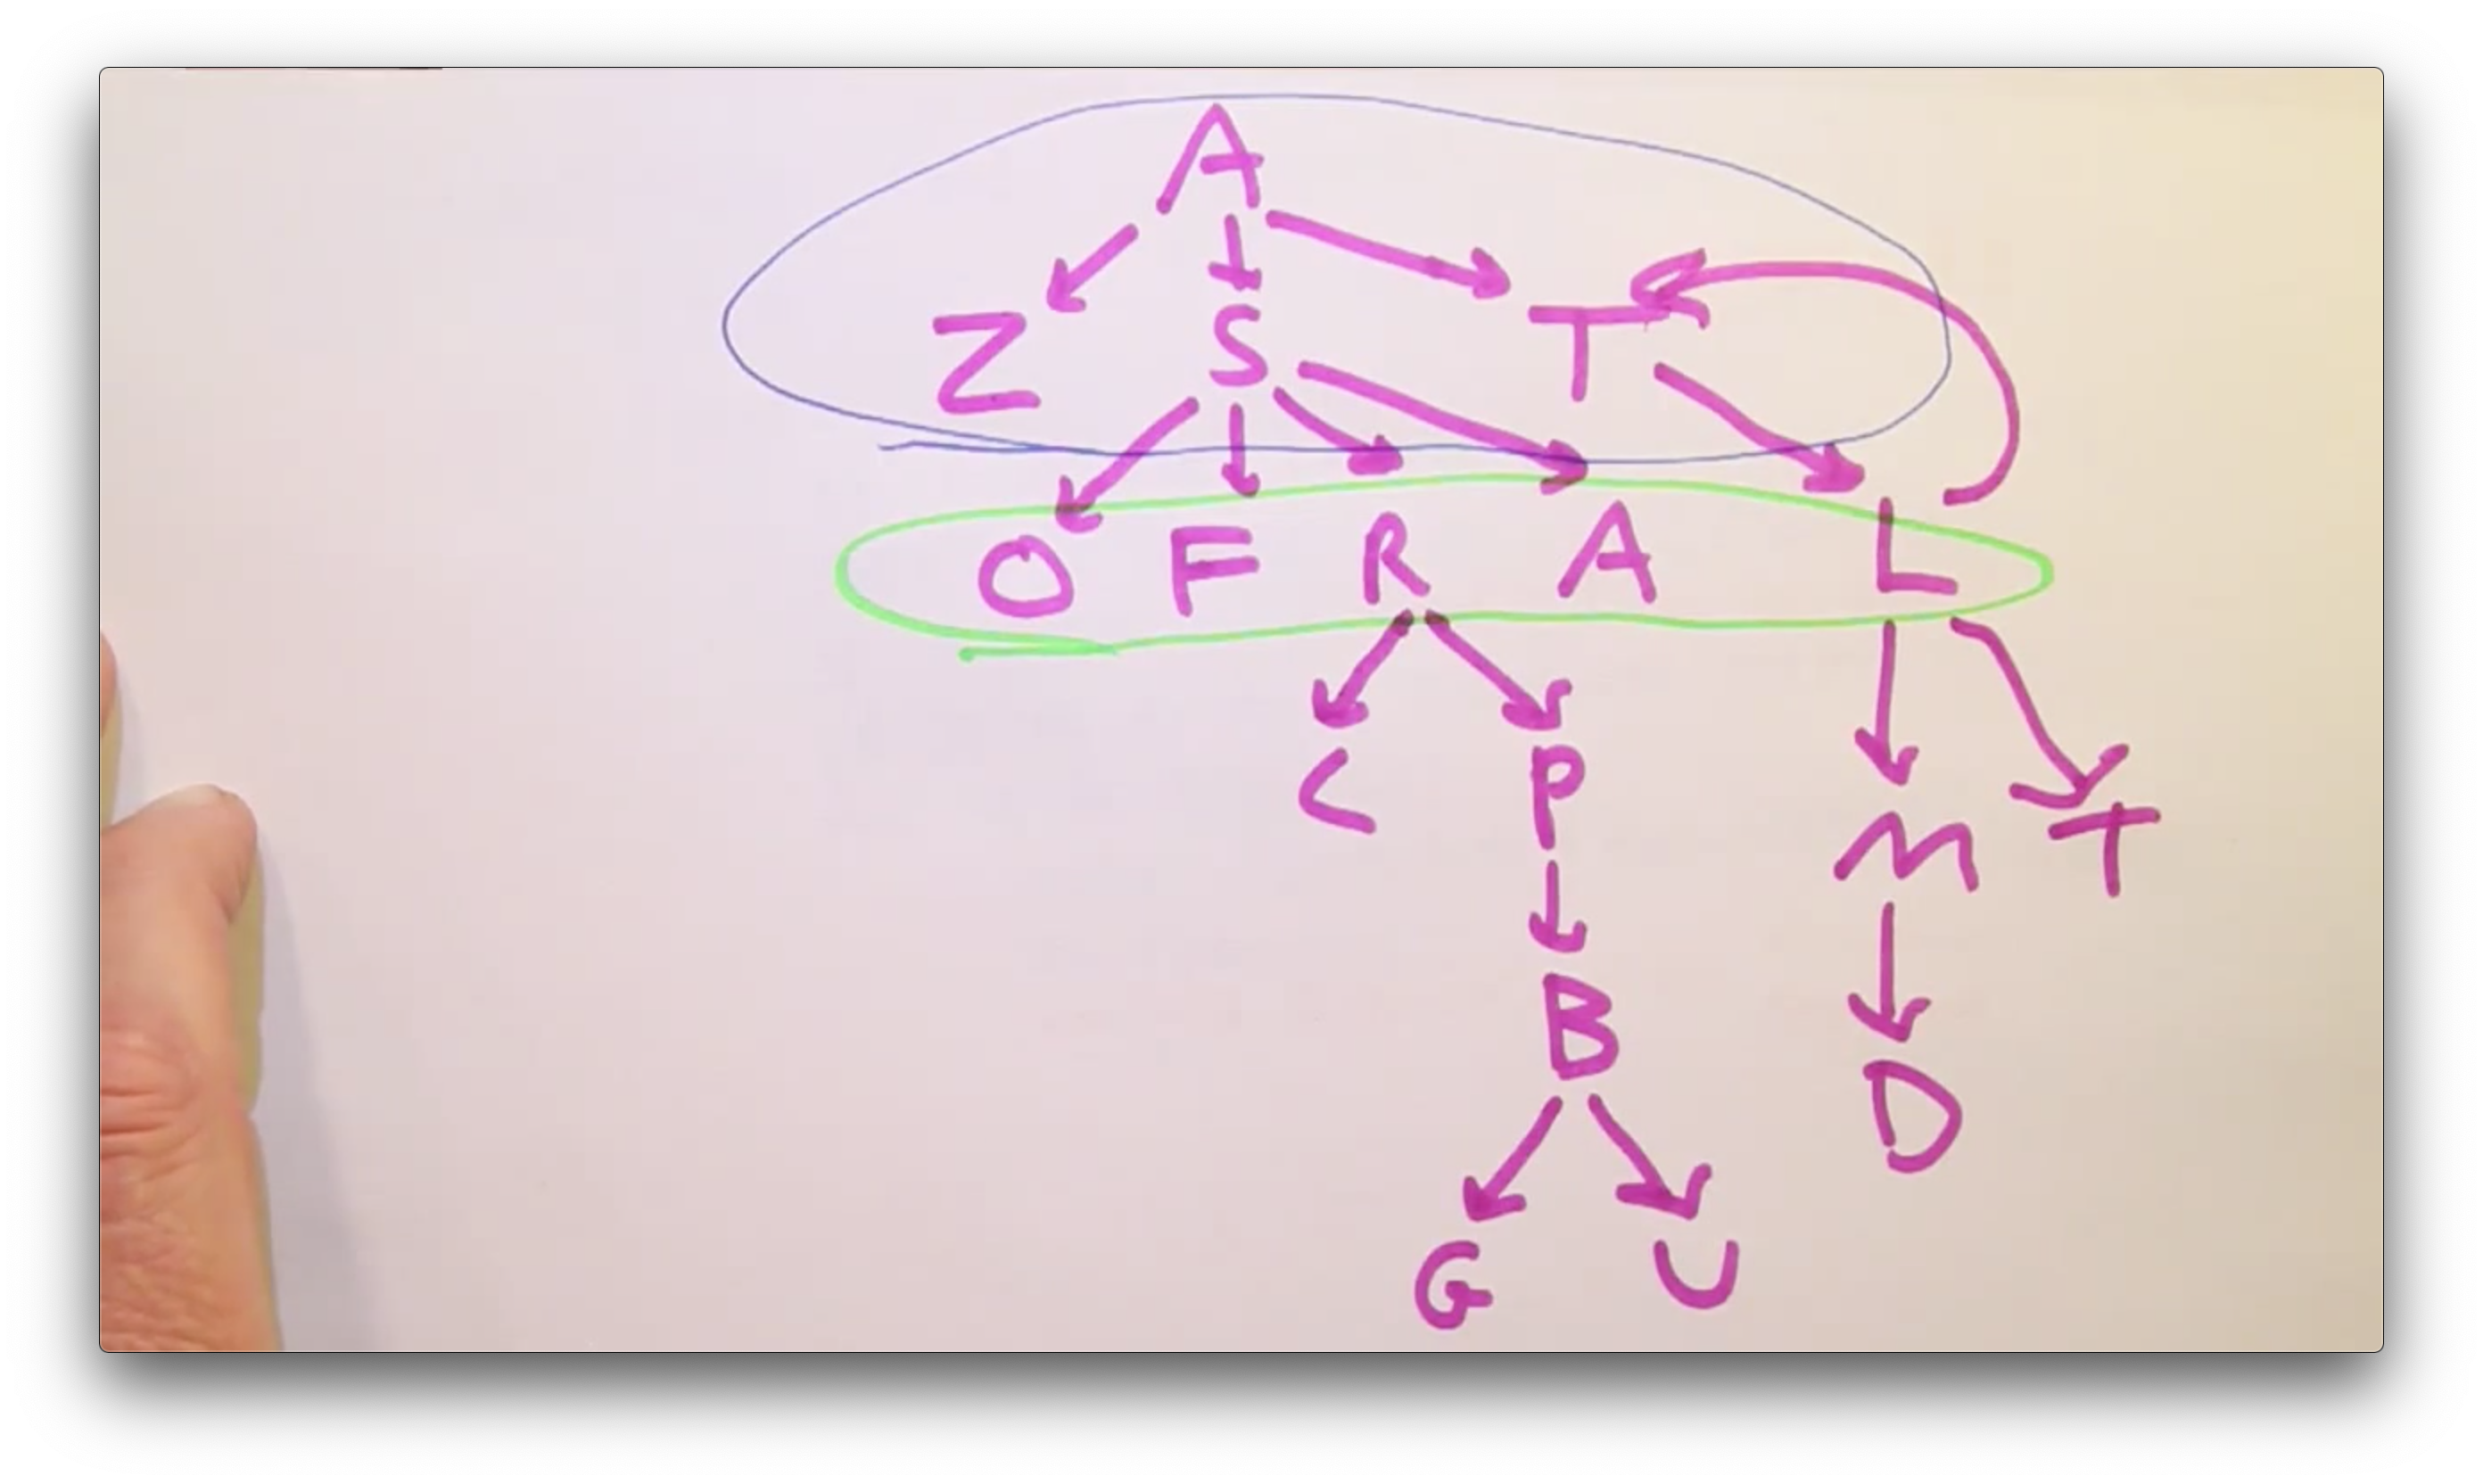 A
Z S T
O F R A L
C P
M T
B
D
G U